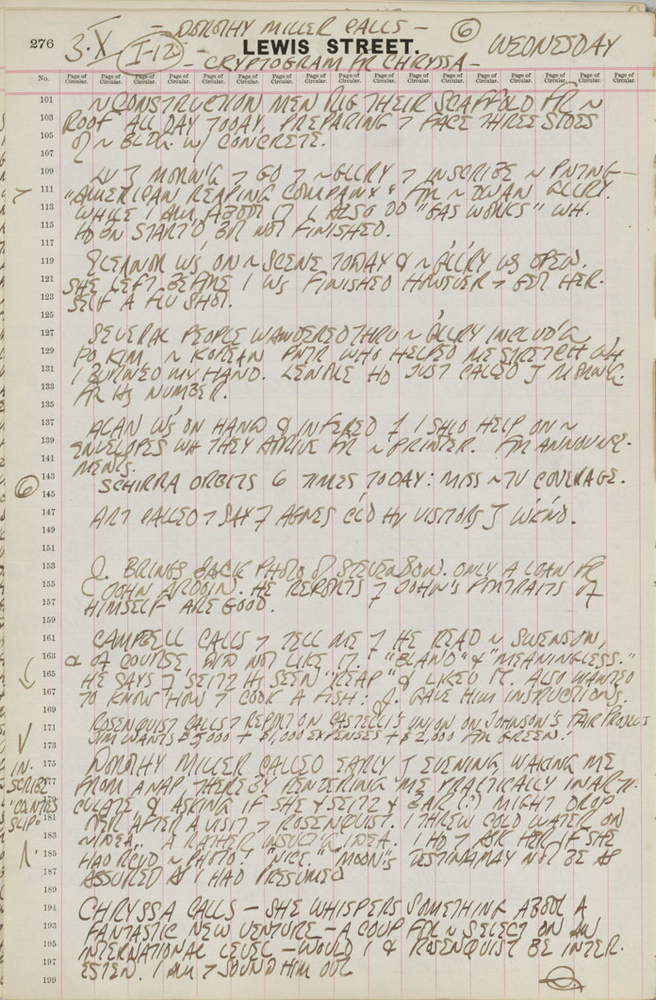 - DOROTHY MILLER CALLS -
276 3·X (I-12) - LEWIS STREET. ⑥ WEDNESDAY
- CRYPTOGRAM FR CHRYSSA -
No. Page of Circular. Page of Circular. Page of Circular. Page of Circular. Page of Circular. Page of Circular. Page of Circular. Page of Circular. Page of Circular. Page of Circular. Page of Circular. Page of Circular. Page of Circular. Page of Circular. Page of Circular. Page of Circular. Page of Circular.
101 ~ CONSTRUCTION MEN RIG THEIR SCAFFOLD FR ~
103 ROOF ALL DAY TODAY, PREPARING 7 FACE THREE SIDES
105 OF ~ BLDG. W/ CONCRETE.
107
109 MORN'G 7 GO 7 ~ GLLRY 7 INSCRIBE ~ PNTNG—
111 "AMERICAN REAPING COMPANY" FR ~ DWAN GLLRY.
113 WHILE I AM ABOUT IT I ALSO DO "GAS WORKS" WH.
115 HD BN START'D BT NOT FINISHED.
117
119 ELEANOR WS ON ~ SCENE TODAY & ~ GLLRY WS OPEN.
121 SHE LEFT BEFORE I WS FINISHED HOWEVER 7 GET HER-
123 SELF A FLU SHOT.
125
127 SEVERAL PEOPLE WANDERED THRU ~ GLLRY INCLUD'G
129 PO KIM, ~ KOREAN PNTR WHO HELPED ME STRETCH WH
131 I BURNED MY HAND. LENORE HD JUST CALLED J MORN'G
133 FR HS NUMBER.
135
137 ALAN WS ON HAND & INFERED I SHLD HELP ON ~
139 ENVELOPES WH THEY ARRIVE FR ~ PRINTER. FR ANNOUNCE-
141 MENTS.
143 SCHIRRA ORBITS 6 TIMES TODAY: MISS ~ TV COVERAGE.
⑥ 145
147 ART CALLED 7 SAY 7 AGNES CLD HV VISITORS J WKND.
149
151
153 J. BRINGS BACK PHOTO OF STEVENSON. ONLY A LOAN FR
155 JOHN ARDOIN. HE REPORTS 7 JOHN'S PORTRAITS OF
157 HIMSELF ARE GOOD.
159
161 CAMPBELL CALLS 7 TELL ME 7 HE READ ~ SWENSON,
163 & OF COURSE, DID NOT LIKE IT. "BLAND" & "MEANINGLESS."
165 HE SAYS 7 SEITZ HS SEEN "REAP" & LIKED IT. ALSO WANTED
167 TO KNOW HOW 7 COOK A FISH: J. GAVE HIM INSTRUCTIONS.
169
171 ROSENQUIST CALLS 7 REPORT ON CASTELLI'S UNION ON JOHNSON'S FAIR PROJECT
173 JIM WANTS $5,000 + $1,000 EXPENSES + $2,000 FR GREEN!
175 DOROTHY MILLER CALLED EARLY J EVENING, WAKING ME
IN-
SCRIBE 177 FROM A NAP THEREBY RENDERING ME PRACTICALLY INARTI-
179 CULATE & ASKING IF SHE & SEITZ & MIGHT DROP
SLIP" 181 OVER AFTER A VISIT 7 ROSENQUIST. I THREW COLD WATER ON
183 ~ IDEA. A RATHER IDEA. I HD 7 ASK HER IF SHE
185 HAD RCVD ~ PHOTO! "NICE." MOON'S MAY NOT BE AS
187 ASSURED AS I HAD PRESUMED
189
191 CHRYSSA CALLS — SHE WHISPERS SOMETHINK ABOUT A
193 FANTASTIC NEW VENTURE — A COUP FR ~ SELECT ON AN
195 INTERNATIONAL LEVEL — WOULD I & ROSENQUIST BE INTER-
197 ESTED. I AM 7 SOUND HIM OUT
199